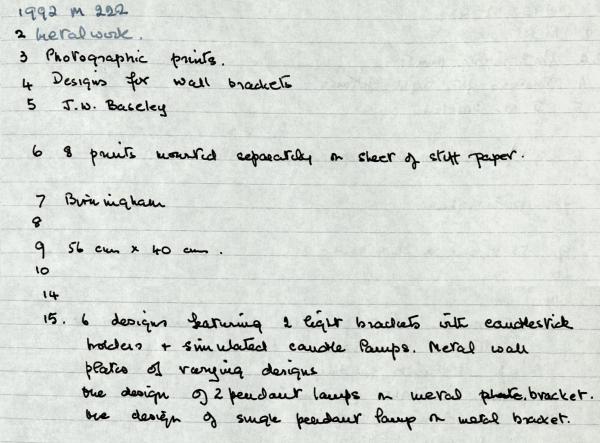 1992 M 222
2 Metalwork.
3 Photographic prints.
4 Designs for wall brackets
5 J.W. Baseley
6 8 prints mounted separately on sheet of stiff paper.
7 Birmingham
8
9 56 cm x 40 cm.
10
14
15. 6 designs featuring 2 light brackets with candlestick
holders + simulated candle lamps. Metal wall
plates of varying designs
one design of 2 pendant lamps on metal bracket.
one design of single pendant lamp on metal bracket.